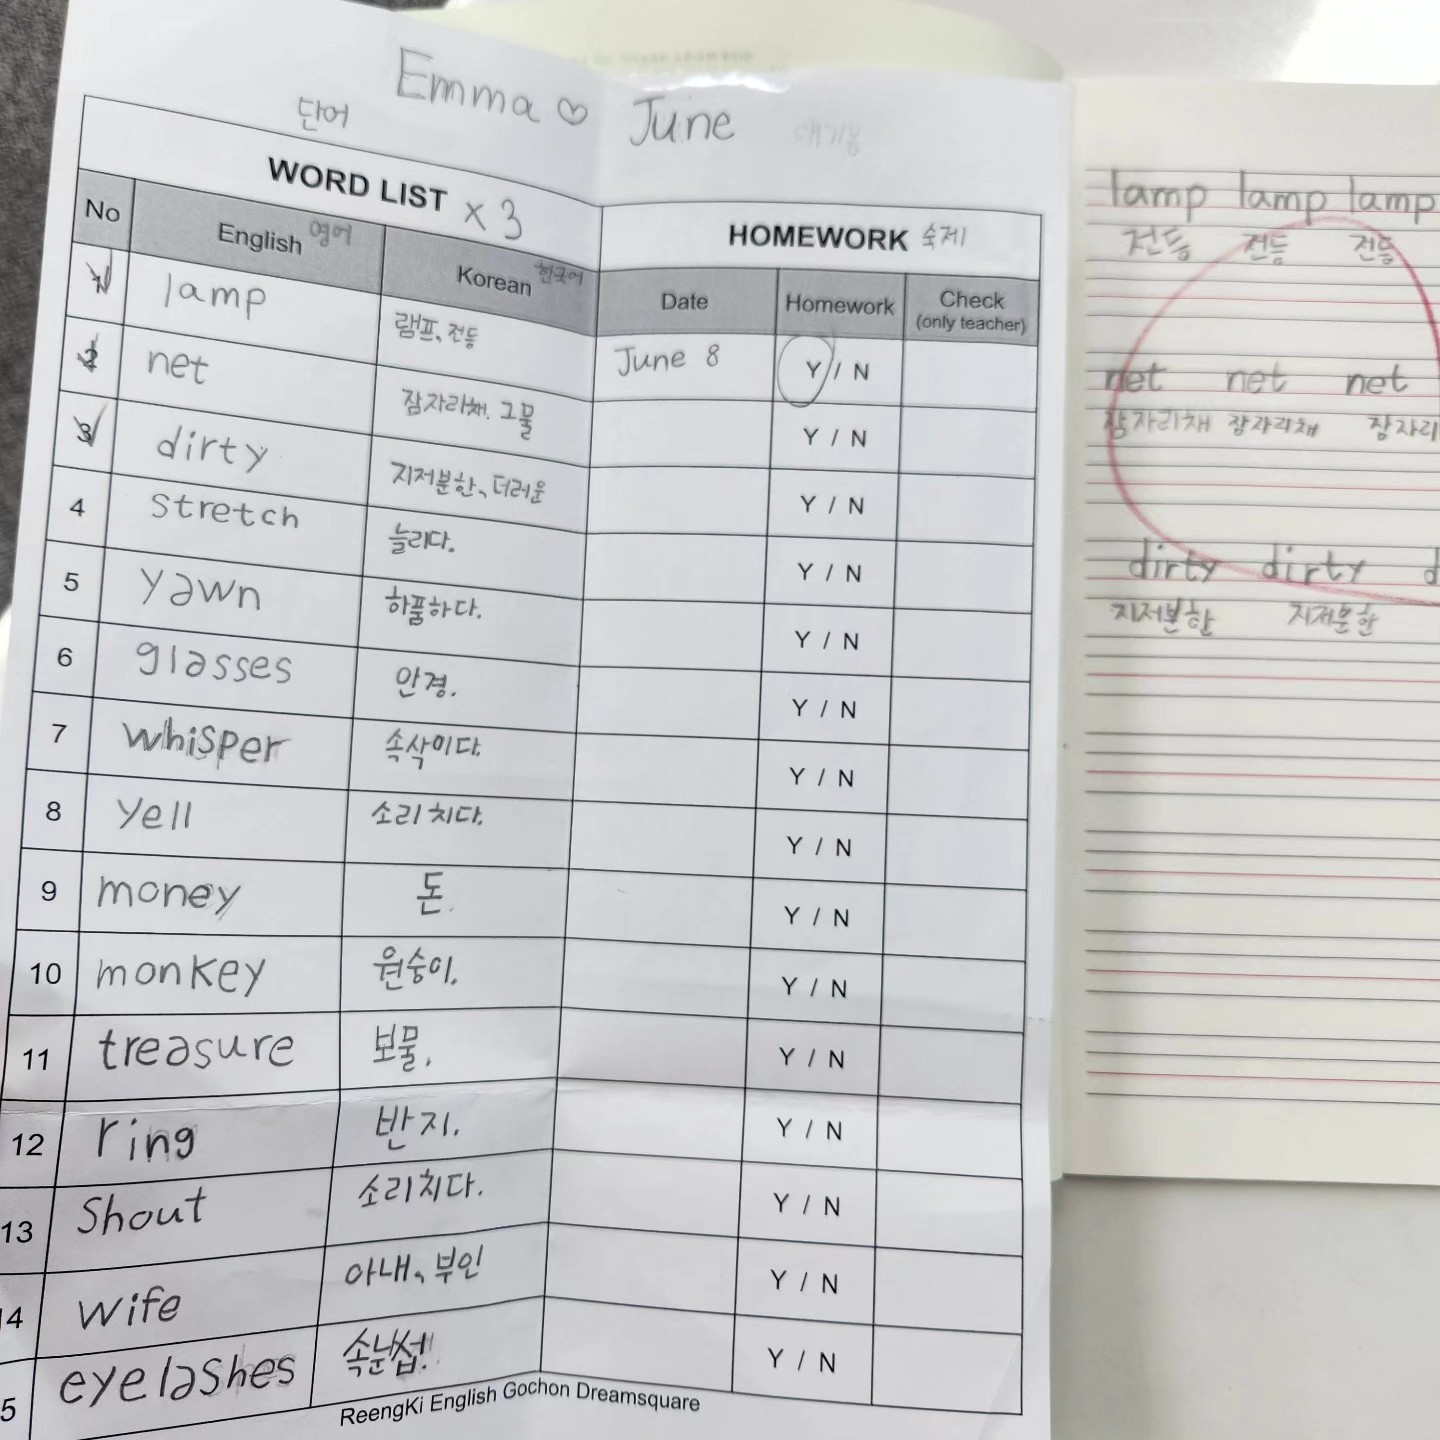 Emma ♡ June
단어
WORD LIST x 3
HOMEWORK 숙제
No English 영어 Korean 한국어 Date Homework Check (only teacher)
1 lamp 램프, 전등 June 8 Y / N
2 net 잠자리채. 그물 Y / N
3 dirty 지저분한, 더러운 Y / N
4 stretch 늘리다. Y / N
5 yawn 하품하다. Y / N
6 glasses 안경. Y / N
7 whisper 속삭이다. Y / N
8 yell 소리치다. Y / N
9 money 돈. Y / N
10 monkey 원숭이. Y / N
11 treasure 보물. Y / N
12 ring 반지. Y / N
13 shout 소리치다. Y / N
14 wife 아내, 부인 Y / N
5 eyelashes 속눈썹! Y / N
ReengKi English Gochon Dreamsquare
lamp lamp lamp
전등 전등 전등
net net net
잠자리채 잠자리채 잠자리
dirty dirty d
지저분한 지저분한